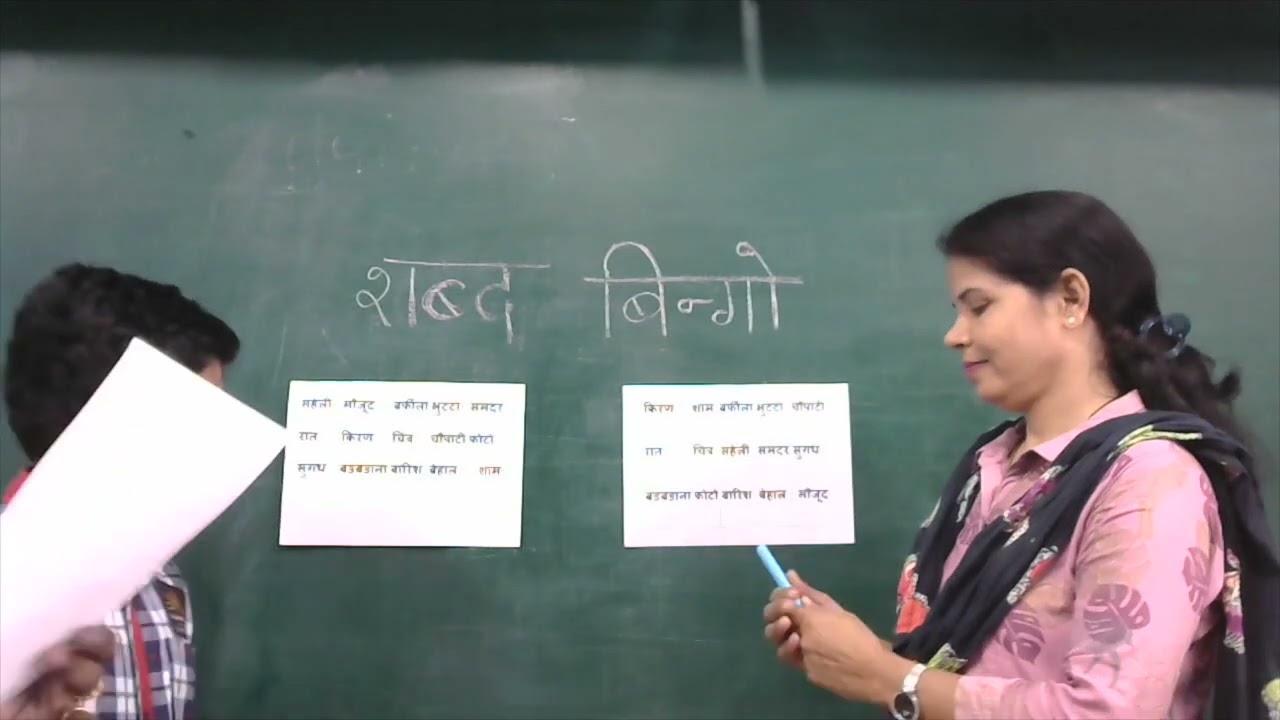 शब्द बिन्गो
सहेली मौजूद बर्फीला भुटटा समदर
रात किरण चित्र चौपाटी फोटो
सुगध बडबडाना बारिश बेहाल शाम
किरण शाम बर्फीला भुटटा चौपाटी
रात चित्र सहेली समदर सुगध
बडबडाना फोटो बारिश बेहाल मौजूद